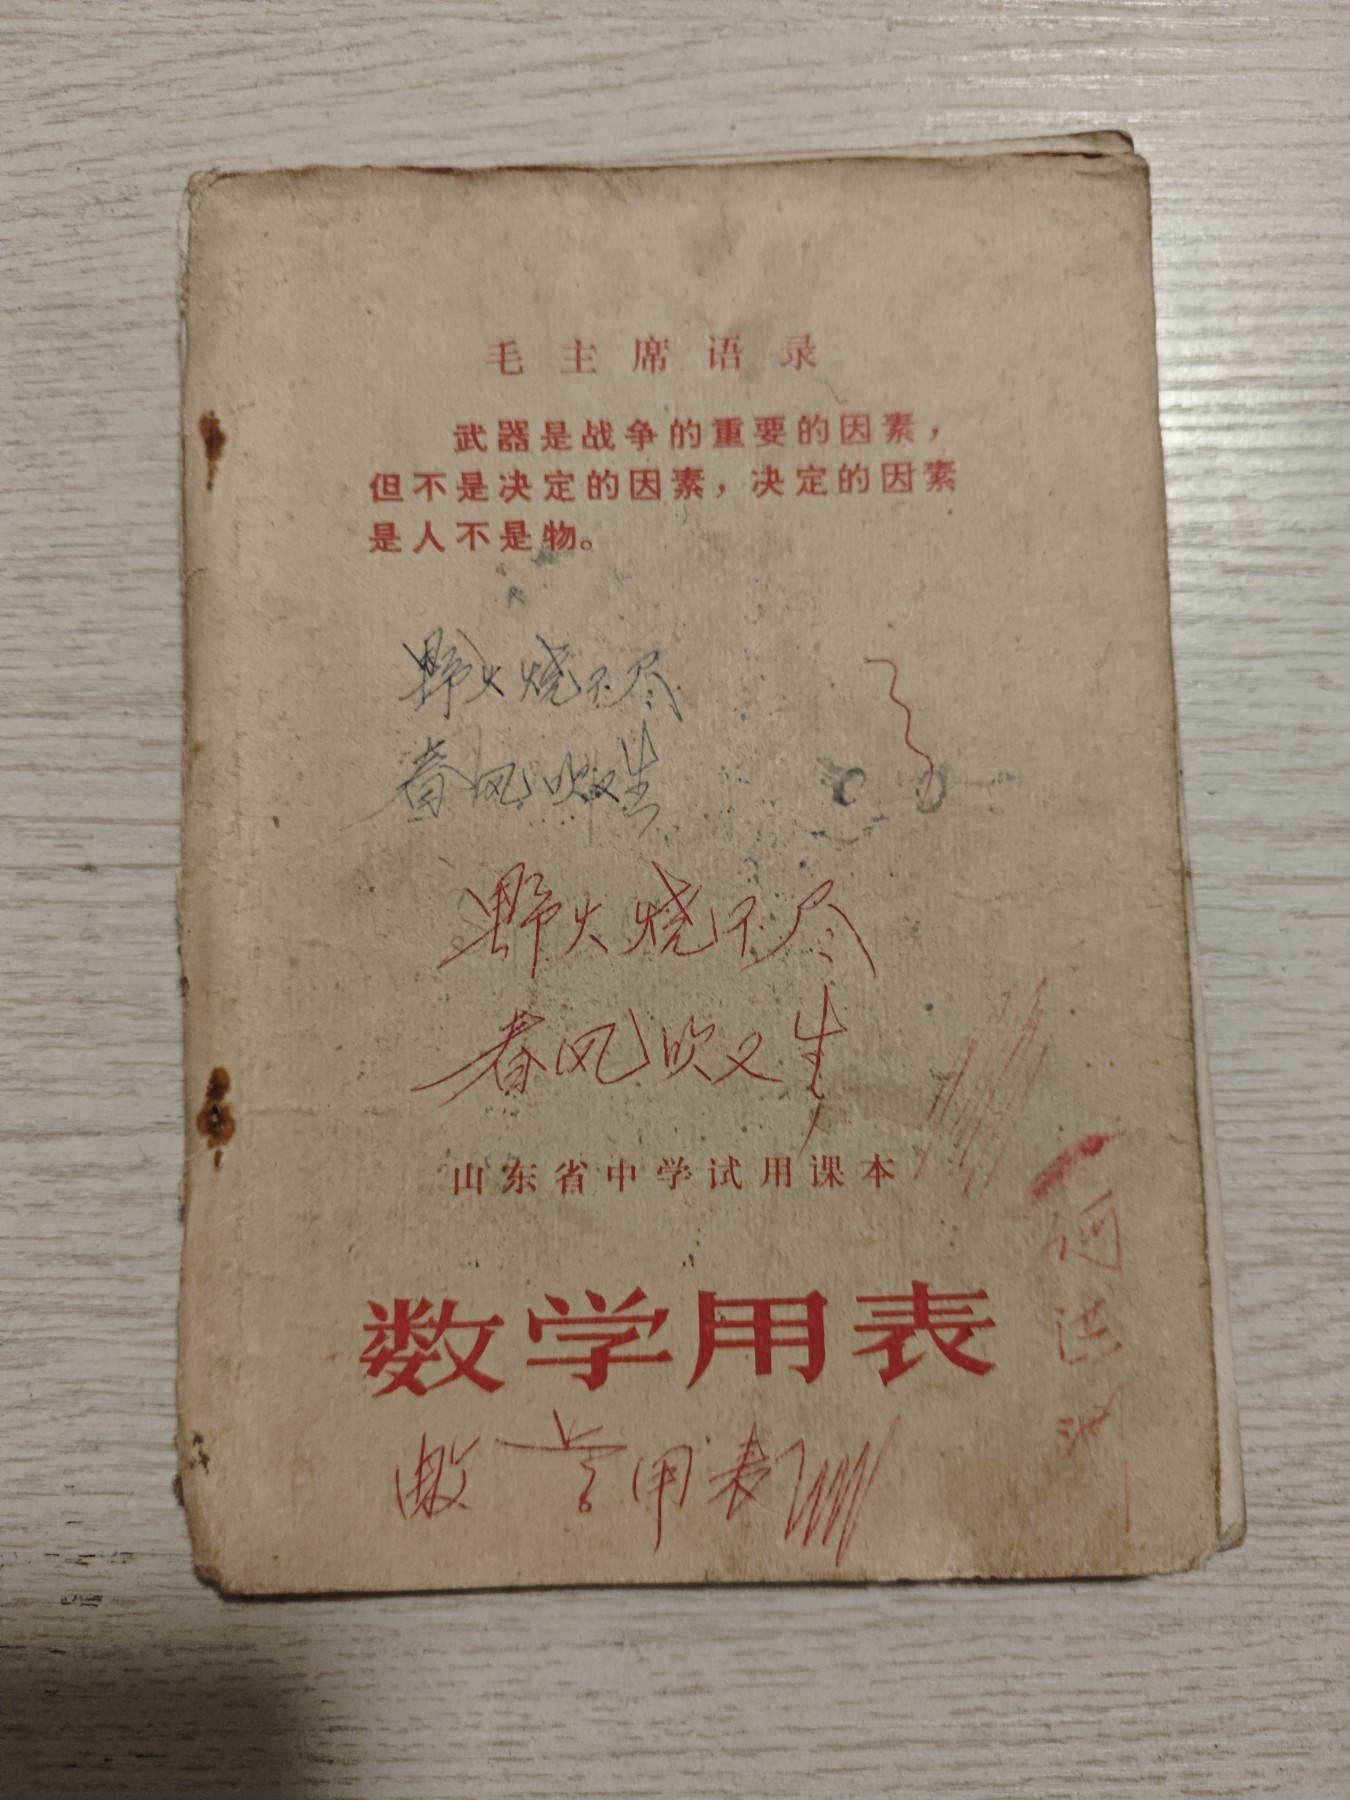 毛主席语录
武器是战争的重要的因素，
但不是决定的因素，决定的因素
是人不是物。
野火烧不尽
春风吹又生
野火烧不尽
春风吹又生
山东省中学试用课本
数学用表
数学用表
何洪洲